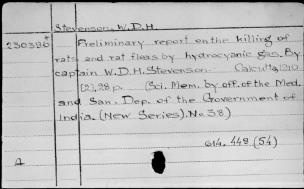 Stevenson, W.D.H.
230386
Preliminary report on the killing of
rats and rat fleas by hydrocyanic gas. By
captain W.D.H. Stevenson. Calcutta, 1910.
[2], 28 p. (Sci. Mem. by off. of the Med.
and San. Dep. of the Government of
India. (New Series). No 38)
614.448 (54)
A